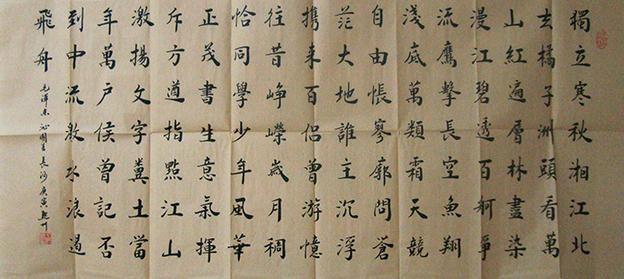 獨立寒秋湘江北
去橘子洲頭看萬
山紅遍層林盡染
漫江碧透百舸爭
流鷹擊長空魚翔
淺底萬類霜天競
自由悵寥廓問蒼
茫大地誰主沉浮
携來百侶曾游憶
往昔崢嶸歲月稠
恰同學少年風華
正茂書生意氣揮
斥方遒指點江山
激揚文字糞土當
年萬戶侯曾記否
到中流擊水浪遏
飛舟
毛澤東沁園春長沙庚寅